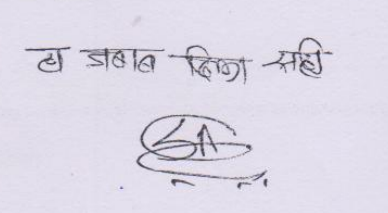 हा जबाब दिला सही